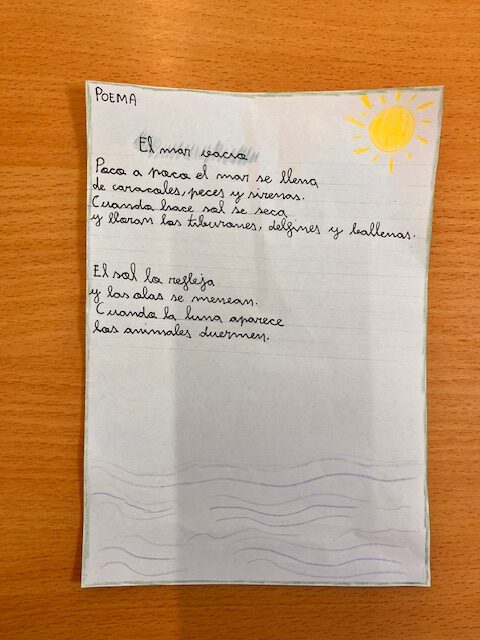 POEMA
El mar vacio
Poco a poco el mar se llena
de caracoles, peces y sirenas.
Cuando hace sol se seca
y lloran los tiburones, delfines y ballenas.
El sol lo refleja
y las olas se menean.
Cuando la luna aparece
los animales duermen.